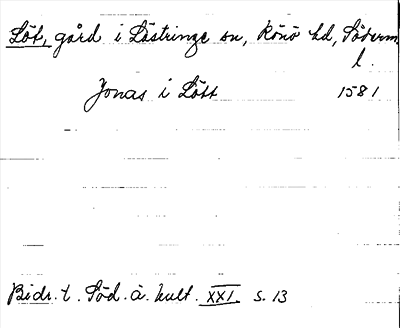 Löt, gård i Lästringe sn, Rönö hd, Söderm.
l.
Jonas i Lött 1581
Bidr. t. Söd. ä. kult. XXI s. 13